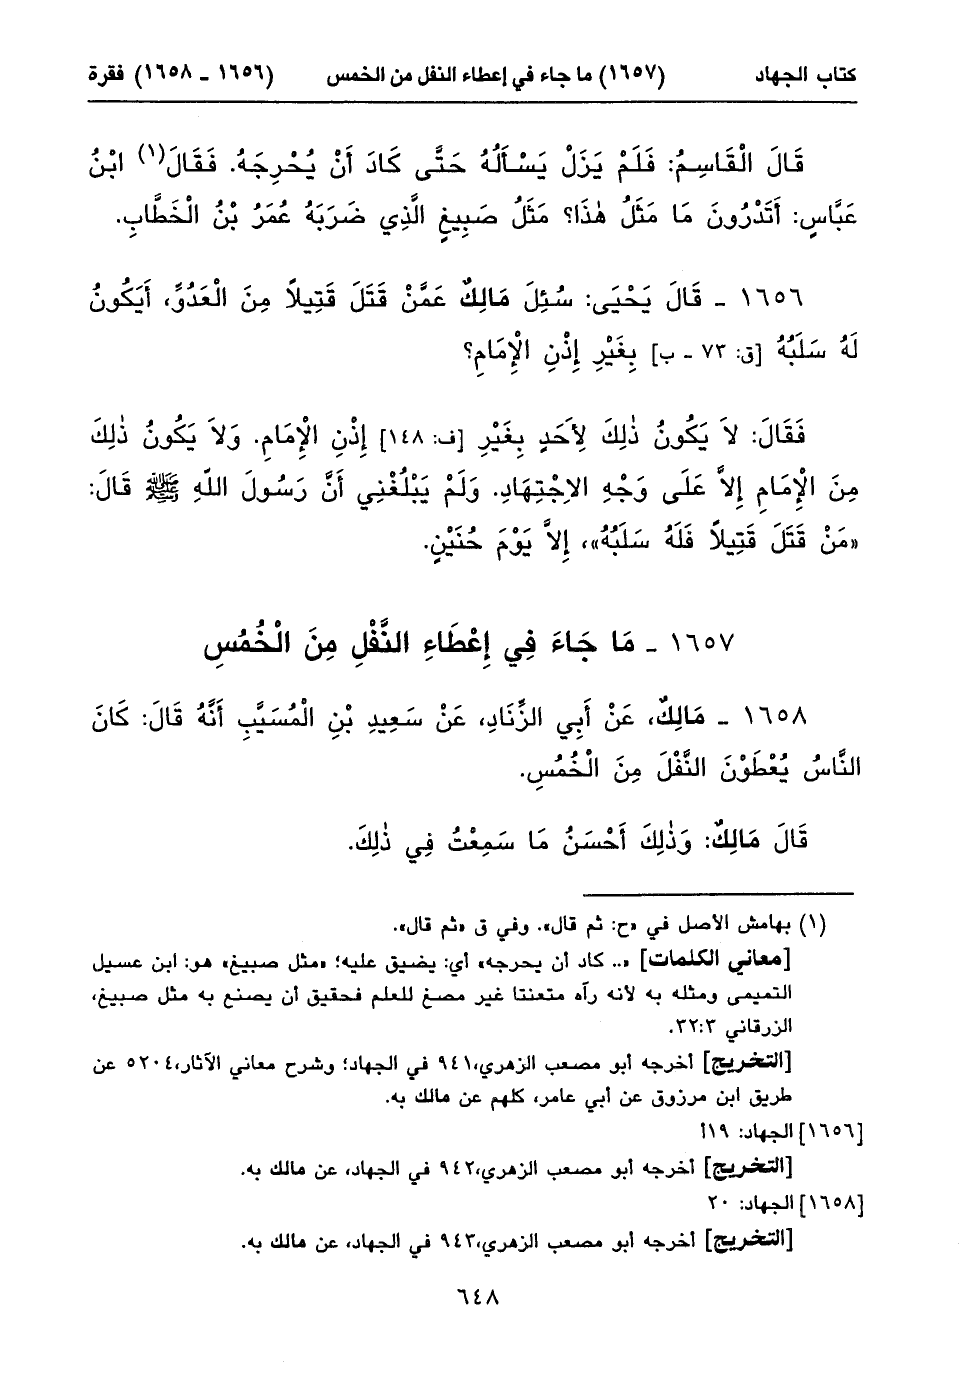 كتاب الجهاد (١٦٥٧) ما جاء في إعطاء النفل من الخمس (١٦٥٦ ـ ١٦٥٨) فقرة
قَالَ الْقَاسِمُ: فَلَمْ يَزَلْ يَسْأَلُهُ حَتَّى كَادَ أَنْ يُحْرِجَهُ. فَقَالَ(١) ابْنُ
عَبَّاسٍ: أَتَدْرُونَ مَا مَثَلُ هٰذَا؟ مَثَلُ صَبِيغٍ الَّذِي ضَرَبَهُ عُمَرُ بْنُ الْخَطَّابِ.
١٦٥٦ ـ قَالَ يَحْيَى: سُئِلَ مَالِكٌ عَمَّنْ قَتَلَ قَتِيلاً مِنَ الْعَدُوِّ، أَيَكُونُ
لَهُ سَلَبُهُ [ق: ٧٣ ـ ب] بِغَيْرِ إِذْنِ الْإِمَامِ؟
فَقَالَ: لاَ يَكُونُ ذٰلِكَ لِأَحَدٍ بِغَيْرِ [ف: ١٤٨] إِذْنِ الْإِمَامِ. وَلاَ يَكُونُ ذٰلِكَ
مِنَ الْإِمَامِ إِلاَّ عَلَى وَجْهِ الاِجْتِهَادِ. وَلَمْ يَبْلُغْنِي أَنَّ رَسُولَ اللّهِ ﷺ قَالَ:
«مَنْ قَتَلَ قَتِيلاً فَلَهُ سَلَبُهُ»، إِلاَّ يَوْمَ حُنَيْنٍ.
١٦٥٧ ـ مَا جَاءَ فِي إِعْطَاءِ النَّفْلِ مِنَ الْخُمُسِ
١٦٥٨ ـ مَالِكٌ، عَنْ أَبِي الزِّنَادِ، عَنْ سَعِيدِ بْنِ الْمُسَيَّبِ أَنَّهُ قَالَ: كَانَ
النَّاسُ يُعْطَوْنَ النَّفْلَ مِنَ الْخُمُسِ.
قَالَ مَالِكٌ: وَذٰلِكَ أَحْسَنُ مَا سَمِعْتُ فِي ذٰلِكَ.
(١) بهامش الأصل في «ح: ثم قال». وفي ق «ثم قال».
[معاني الكلمات] «.. كاد أن يحرجه» أي: يضيق عليه؛ «مثل صبيغ» هو: ابن عسيل
التميمى ومثله به لأنه رآه متعنتا غير مصغ للعلم فحقيق أن يصنع به مثل صبيغ،
الزرقاني ٣٢:٣.
[التخريج] أخرجه أبو مصعب الزهري،٩٤١ في الجهاد؛ وشرح معاني الآثار،٥٢٠٤ عن
طريق ابن مرزوق عن أبي عامر، كلهم عن مالك به.
[١٦٥٦] الجهاد: ١٩أ
[التخريج] أخرجه أبو مصعب الزهري،٩٤٢ في الجهاد، عن مالك به.
[١٦٥٨] الجهاد: ٢٠
[التخريج] أخرجه أبو مصعب الزهري،٩٤٣ في الجهاد، عن مالك به.
٦٤٨